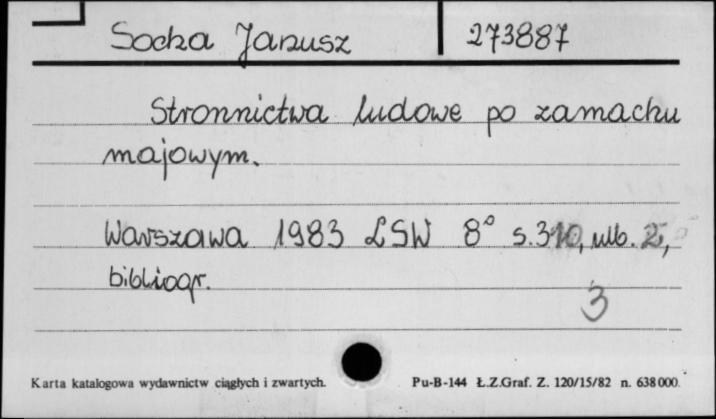 Socha Janusz 273887
Stronnictwa ludowe po zamachu
majowym.
Warszawa 1983 LSW 8° s. 310, nlb. 2,
bibliogr.
3
Karta katalogowa wydawnictw ciągłych i zwartych. Pu-B-144 Ł.Z.Graf. Z. 120/15/82 n. 638000.